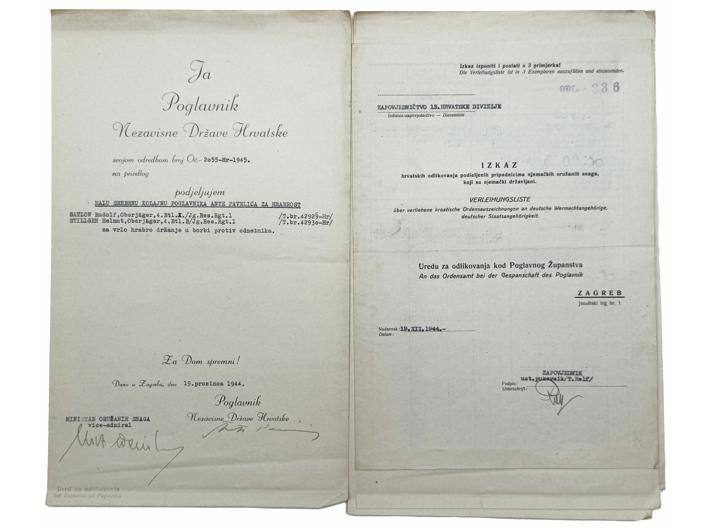 Ja
Poglavnik
Nezavisne Države Hrvatske
svojom odredbom broj Oč- 2855-Hr-1945.
na prijedlog
podjeljujem
MALU SREBRNU KOLAJNU POGLAVNIKA ANTE PAVELIĆA ZA HRABROST
Rudolf, Oberjäger, 4.Btl. /Jg.Res.Rgt.1 /T.br.42929-Hr/
Helmut, Oberjäger, 4.Btl. /Jg.Res.Rgt.1 /T.br.42930-Hr/
za vrlo hrabro držanje u borbi protiv odmetnika.
Za Dom spremni!
Dano u Zagrebu, dne 15.prosinca 1944.
Poglavnik
Nezavisne Države Hrvatske
MINISTAR ORUŽANIH SNAGA
vice-admiral
Ured za odlikovanja
Izkaz izpuniti i poslati u 3 primjerka!
Die Verleihungsliste ist in 3 Exemplaren auszufüllen und einzusenden.
336
ZAPOVJEDNIČTVO 13.HRVATSKE DIVIZIJE
IZKAZ
hrvatskih odlikovanja podieljenih pripadnicima njemačkih oružanih snaga,
koji su njemački državljani.
VERLEIHUNGSLISTE
über verliehene kroatische Ordensauszeichnungen an deutsche Wermachtangehörige,
deutscher Staatsangehörigkeit.
Uredu za odlikovanja kod Poglavnog Županstva
An das Ordensamt bei der Gespanschaft des Poglavnik
ZAGREB
Jezuitski trg br. 1
Nadnevak 19.XII.1944.
Datum:
ZAPOVJEDNIK
ust.pukovnik/T.Relf/
Podpis:
Unterschrift: